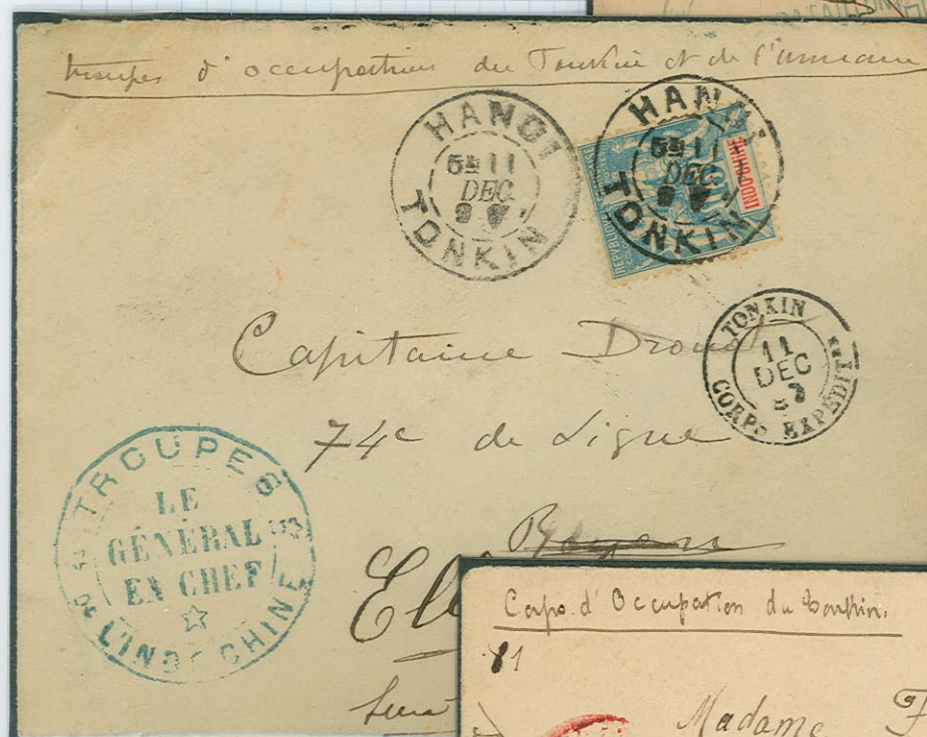 troupes d'occupation du Tonkin et de l'Annam
HANOI
5E 11
DEC
TONKIN
HANOI
5E 11
DEC
TONKIN
INDO-CHINE
REPUBLIQUE
TONKIN
11
DEC
CORPS EXPEDIT
Capitaine Drouot
74e de Ligne
Rouen
TROUPES
DE L'INDO CHINE
LE
GÉNÉRAL
EN CHEF
El
Corps d'Occupation du Tonkin.
Madame F